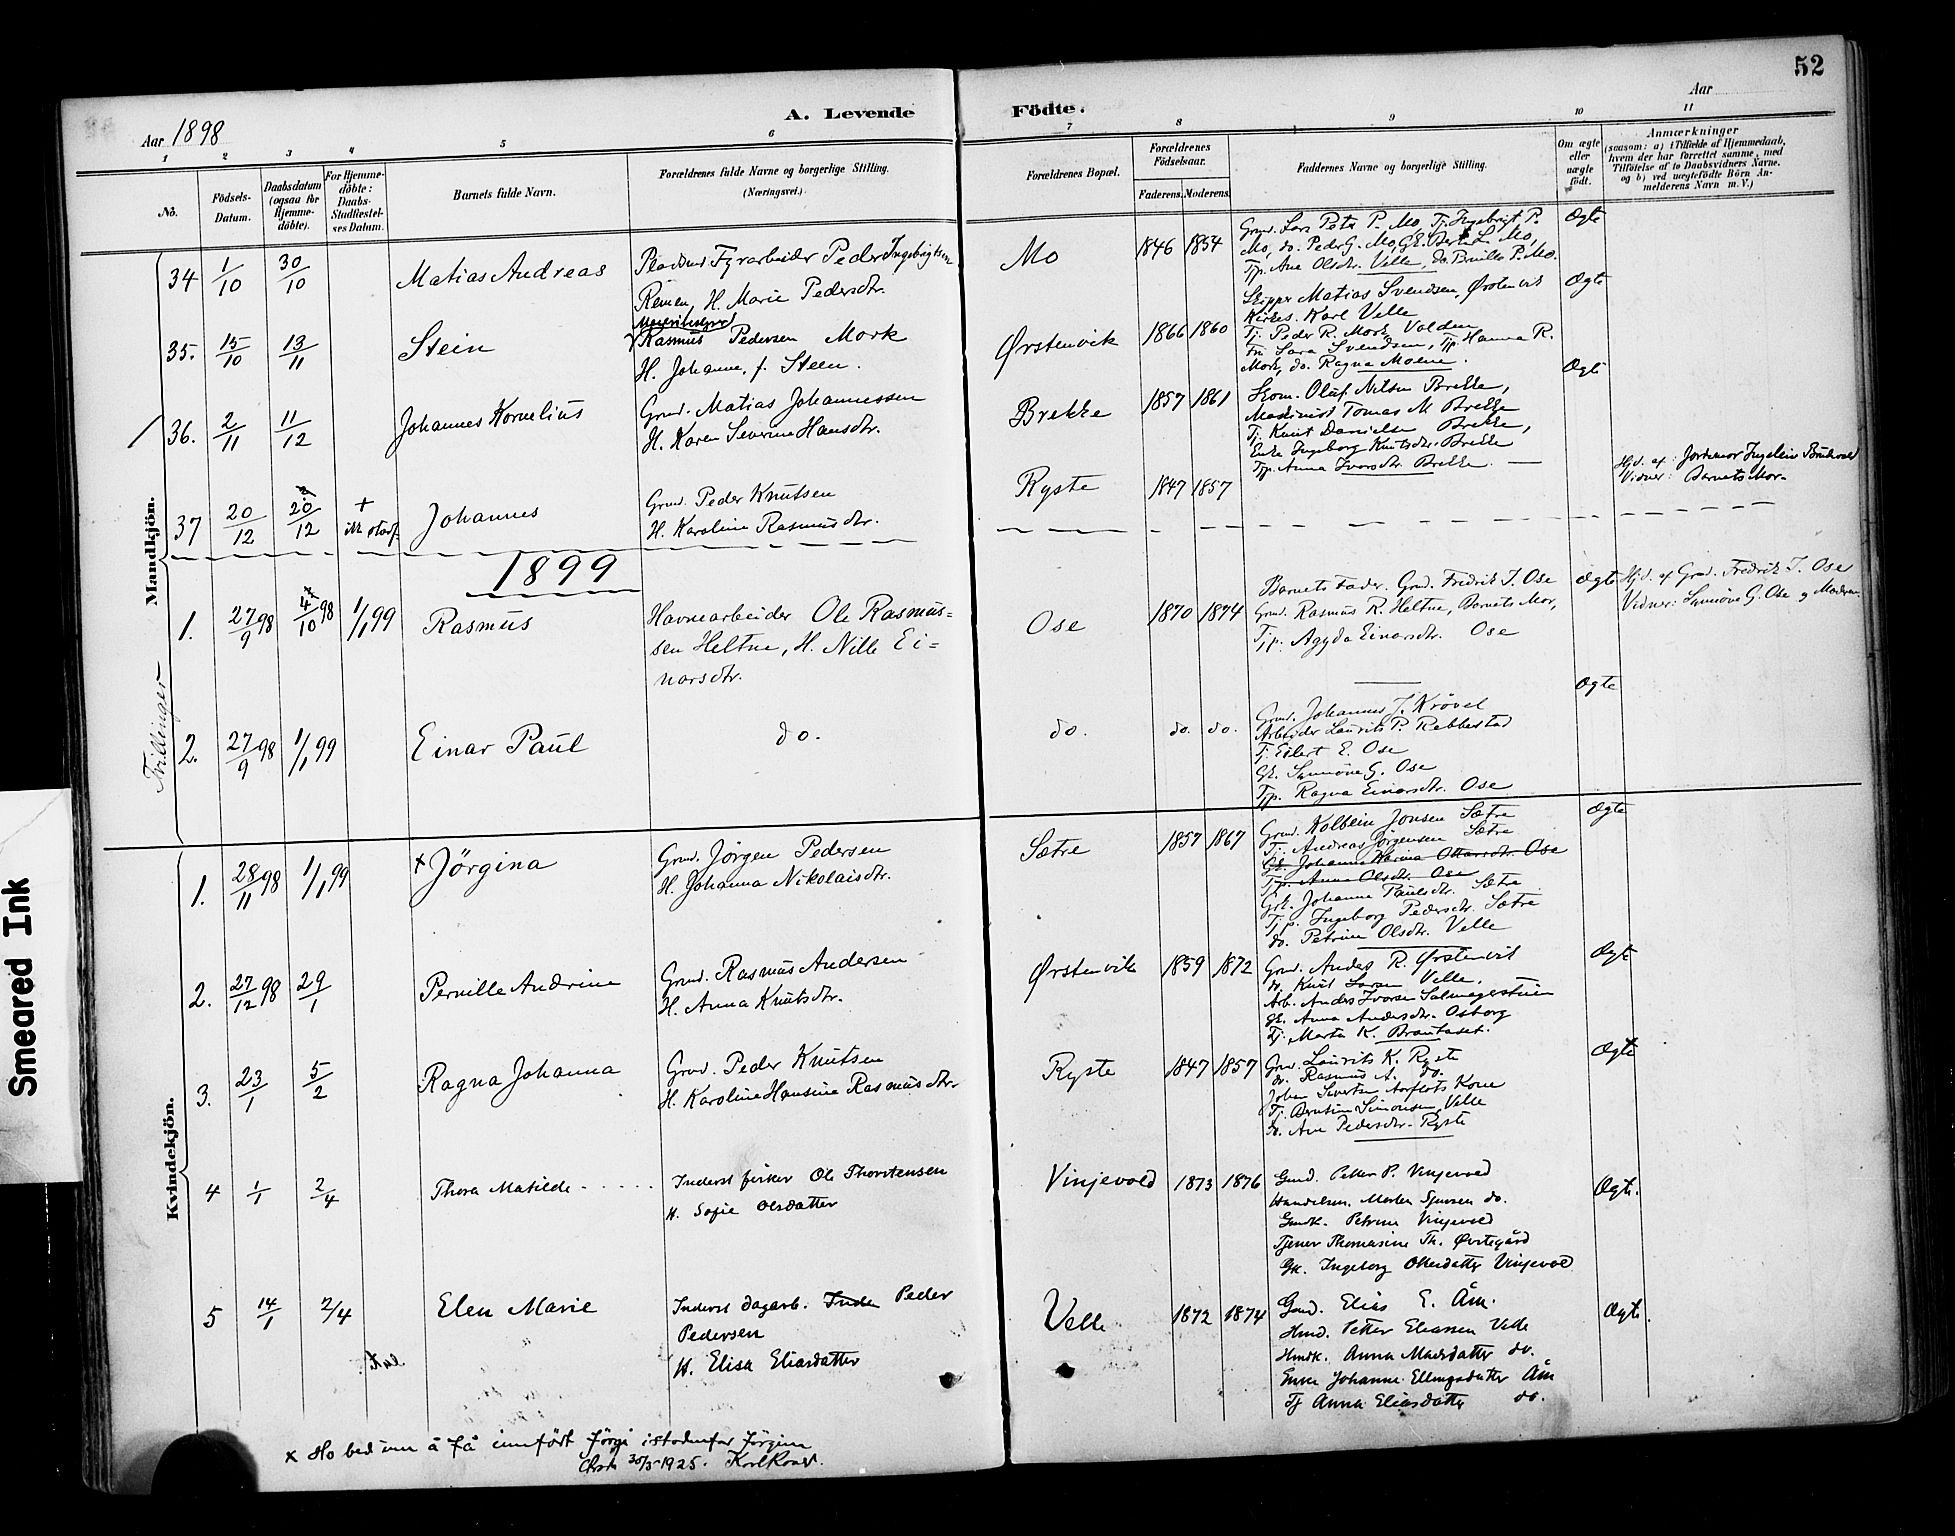 52
A. Levende Födte.
Aar 1898
Aar
1 2 3 4 5 6 7 8 9 10 11
No.
Födsels-Datum.
Daabsdatum (ogsaa for Hjemme-döbte).
For Hjemme-döbte: Daabs-Stadfæstel-ses Datum.
Barnets fulde Navn.
Forældrenes fulde Navne og borgerlige Stilling. (Næringsvei.)
Forældrenes Bopæl.
Forældrenes Födselsaar.
Faderens. Moderens.
Faddernes Navne og borgerlige Stilling.
Om ægte eller uægte født.
Anmærkninger
(saasom: a) i Tilfælde af Hjemmedaab,
hvem der har forrettet samme, med
Tilföielse af to Daabsvidners Navne.
og b) ved uægtefödte Börn An-
melderens Navn m. V.)
Mandkjön.
34 1/10 30/10 Matias Andreas
Pladsmd Fyrarbeider Peder Ingebrigtsen
Remen, H. Marie Pedersdtr.
Mo 1846 1854
Grmd. Lars Peter P. Mo, Tj. Ingebrigt P.
Mo, do. Peder G. Mo,
Tjp. Ane Olsdtr. Velle, do. Pernille P. Mo.
Ægte
35. 15/10 13/11 Stein
Rasmus Pedersen Mork
H. Johanne, f. Steen.
Ørstenvik 1866 1860
Skipper Matias Svendsen, Ørstenvik
Kirkes. Karl Velle
Tj. Peder R. Mork, Volden
Fru Sara Svendsen, Tjp. Hanna R.
Mork, do. Ragna Moene.
Ægte
36. 2/11 11/12 Johannes Kornelius
Grmd. Matias Johannessen
H. Karen Severine Hansdtr.
Brekke 1857 1861
Skom. Oluf Nilsen Brekke,
Maskinist Tomas M Brekke
Tj. Knut Danielsen Brekke,
Enke Ingeborg Knutsdtr. Brekke
Tjp. Anna Ivarsdtr. Brekke.
Ægte
37 20/12 20/12 + Johannes
Grmd. Peder Knutsen
H. Karoline Rasmusdtr.
Ryste 1847 1857
Hjd. af: Jordemor
Vidner: Barnets Mor
1899
Trillinger
1. 27/9 98 4/10 98 1/1 99 Rasmus
Havnearbeider Ole Rasmus-
sen Heltne, H. Nille Ei-
narsdtr.
Ose 1870 1874
Barnets Fader. Grmd. Fredrik I. Ose
Grmd. Rasmus R. Heltne, Barnets Mor,
Tjp. Agyda Einarsdtr. Ose
Ægte
Hjd. af Grmd. Fredrik I. Ose
Vidner: Synnøve G. Ose og Moderen
2. 27/9 98 1/1 99 Einar Paul
do.
do. do. do.
Grmd. Johannes J. Krøvel
Arbeider Laurits P. Rebbestad
Tj. Eilert E. Ose
Gk. Synnøve G. Ose
Tjp. Ragna Einarsdtr. Ose
Ægte
Kvindekjön.
1. 28/11 98 1/1 99 +Jörgina
Grmd. Jörgen Pedersen
H. Johanna Nikolaisdtr.
Sætre 1857 1867
Grmd. Kolbein Jonsen Sætre
Tj. Andreas Jørgensen Sætre
Gk. Johanne Karina Ottarsdtr. Ose
Tjp. Anna Olsdtr. Ose
Grk. Johanne Paulsdtr. Sætre
Tjp. Ingeborg Pedersdtr. Sætre
do. Petrine Olsdtr. Velle
Ægte
2. 27/12 98 29/1 Pernille Andrine
Grmd. Rasmus Andersen
H. Anna Knutsdtr.
Ørstenvik 1859 1872
Grmd. Anders R. Ørstenvik
do. Knut Larsen Velle,
Arb. Anders Ivarsen Salmagerstuen
Gk. Anna Andersdtr. Osborg
Tj. Marta K. Brautaset.
Ægte
3. 23/1 5/2 Ragna Johanna
Grmd. Peder Knutsen
H. Karoline Hansine Rasmusdtr.
Ryste 1847 1857
Grmd. Laurits K. Ryste
do. Rasmus A. do.
Johan Sivertsen Aarflots Kone
Tj. Berntine Simonsen, Velle
do. Ane Pedersdtr. Ryste
Ægte
4 1/1 2/4 Thora Matilde
Inderst fisker Ole Thorstensen
H. Sofie Olsdatter
Vinjevold 1873 1876
Gmd. Petter P. Vinjevold
Handelsm. Morten Sjursen do.
Gmdk. Petrine Vinjevold
Tjener Thomasine Th. Øvregård
Gk. Ingeborg Olsdatter Vinjevold
Ægte.
5 14/1 2/4 Elen Marie
Inderst dagarb. Inde Peder
Pedersen
H. Elisa Eliasdatter
Velle 1872 1874
Gmd. Elias E. Åm.
Hmd. Petter Eliassen Velle
Hmdk. Anna Madsdatter do.
Enke Johanne Ellingsdatter Åm
Tj Anna Eliasdatter do.
Ægte.
x Ho bed um å få innført Jørgi istadenfor Jørgina
30/5 1925.
Smeared Ink